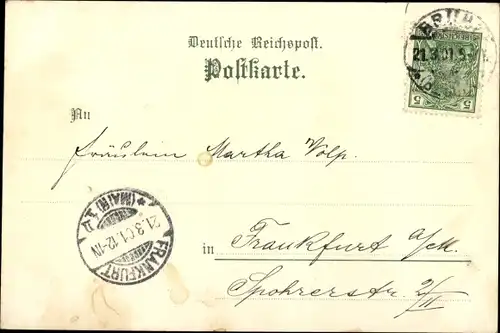 Deutsche Reichspost.
Postkarte.
21.3.01.5-
5 5
An
Fräulein Martha Volp.
FRANKFURT (MAIN) 1
21.3.01.12-1N
in Frankfurt a/M.
Spohrerstr. 2/II